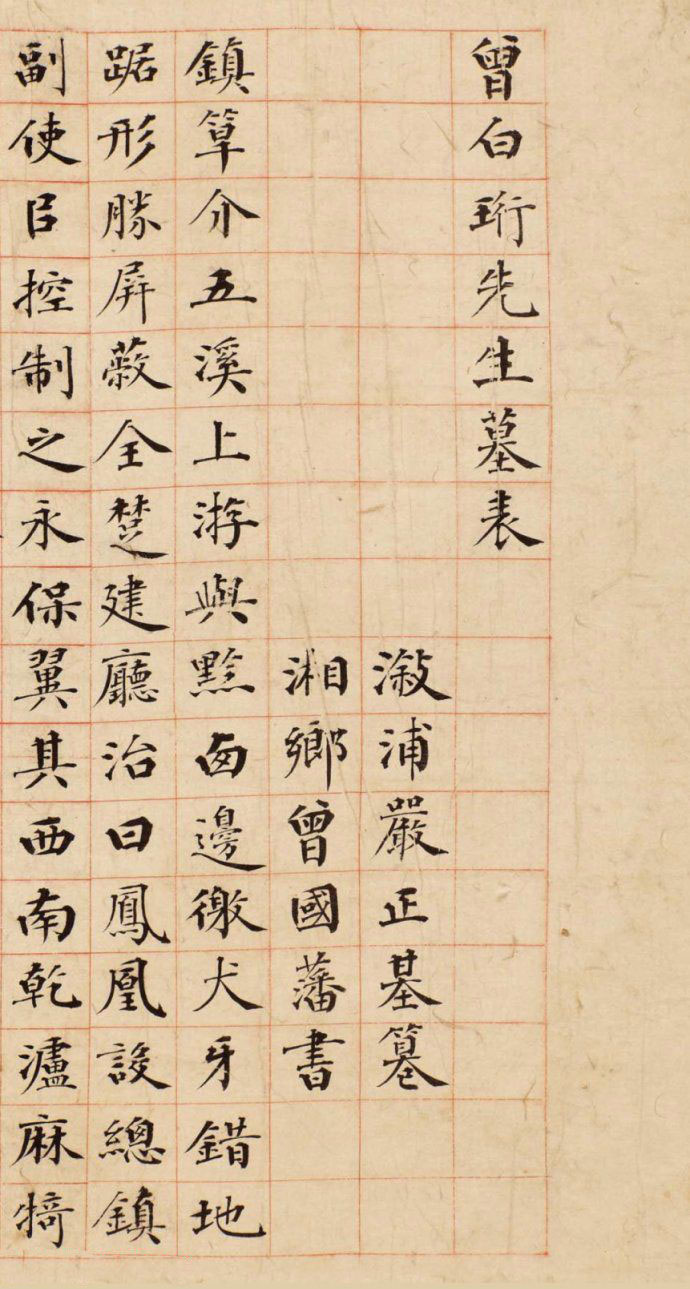 曾白珩先生墓表
溆浦嚴正基篹
湘鄉曾國藩書
鎮筸介五溪上游與黔囱邊徼犬牙錯地
踞形勝屏蔽全楚建廳治曰鳳凰設總鎮
副使㠯控制之永保翼其西南乾瀘麻犄